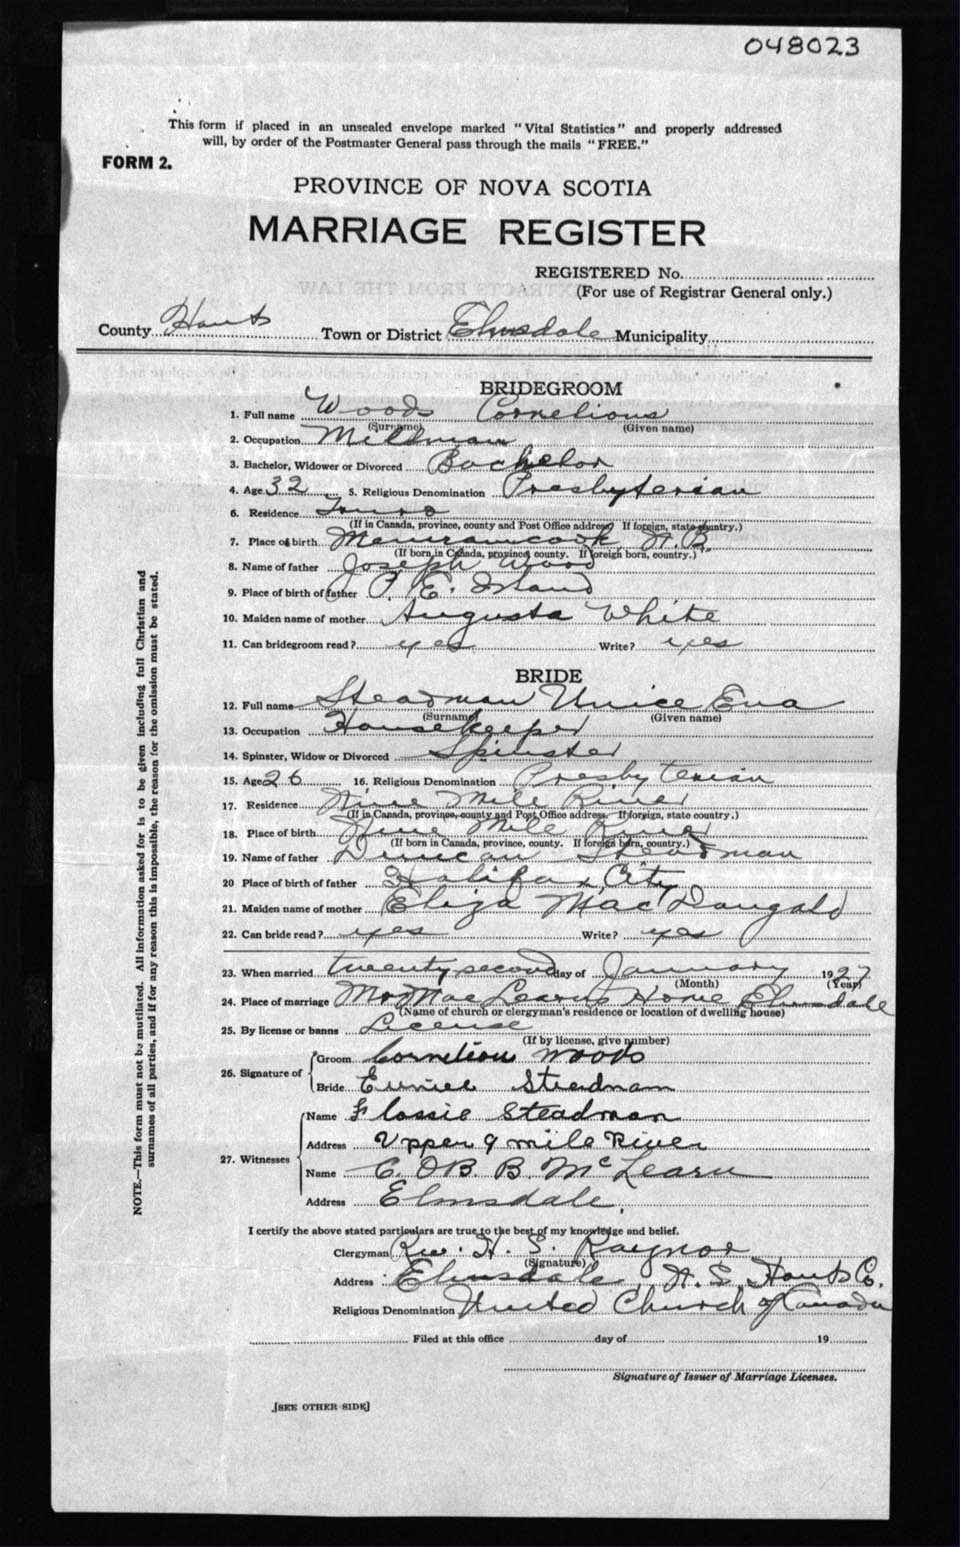 048023
This form if placed in an unsealed envelope marked "Vital Statistics" and properly addressed
will, by order of the Postmaster General pass through the mails "FREE."
FORM 2.
PROVINCE OF NOVA SCOTIA
MARRIAGE REGISTER
REGISTERED No.
(For use of Registrar General only.)
County Hants Town or District Elmsdale Municipality
BRIDEGROOM
1. Full name Woods Cornelious
(Surname) (Given name)
2. Occupation Millman
3. Bachelor, Widower or Divorced Bachelor
4. Age 32 5. Religious Denomination Presbyterian
6. Residence Truro
(If in Canada, province, county and Post Office address. If foreign, state country.)
7. Place of birth Memramcook N.B.
(If born in Canada, province, county. If foreign born, country.)
8. Name of father Joseph Wood
9. Place of birth of father P. E. Island
10. Maiden name of mother Augusta White
11. Can bridegroom read? yes Write? yes
BRIDE
12. Full name Steadman Unice Eva
(Surname) (Given name)
13. Occupation Housekeeper
14. Spinster, Widow or Divorced Spinster
15. Age 26 16. Religious Denomination Presbyterian
17. Residence Nine Mile River
(If in Canada, province, county and Post Office address. If foreign, state country.)
18. Place of birth Nine Mile River
(If born in Canada, province, county. If foreign born, country.)
19. Name of father Duncan Steadman
20 Place of birth of father Halifax City
21. Maiden name of mother Eliza MacDougald
22. Can bride read? yes Write? yes
23. When married twenty second day of January 1927
(Month) (Year)
24. Place of marriage Mr MacLearns Home Elmsdale
(Name of church or clergyman's residence or location of dwelling house)
25. By license or banns License
(If by license, give number)
26. Signature of Groom Cornelious Woods
Bride Eunice Steadman
27. Witnesses Name Flossie Steadman
Address Upper 9 mile River
Name C. O B B. McLearn
Address Elmsdale.
I certify the above stated particulars are true to the best of my knowledge and belief.
Clergyman Rev. H. S. Raynor
(Signature)
Address Elmsdale, N. S. Hants Co.
Religious Denomination United Church of Canada
Filed at this office day of 19
Signature of Issuer of Marriage Licenses.
[SEE OTHER SIDE]
NOTE.—This form must not be mutilated. All information asked for is to be given including full Christian and
surnames of all parties, and if for any reason this is impossible, the reason for the omission must be stated.